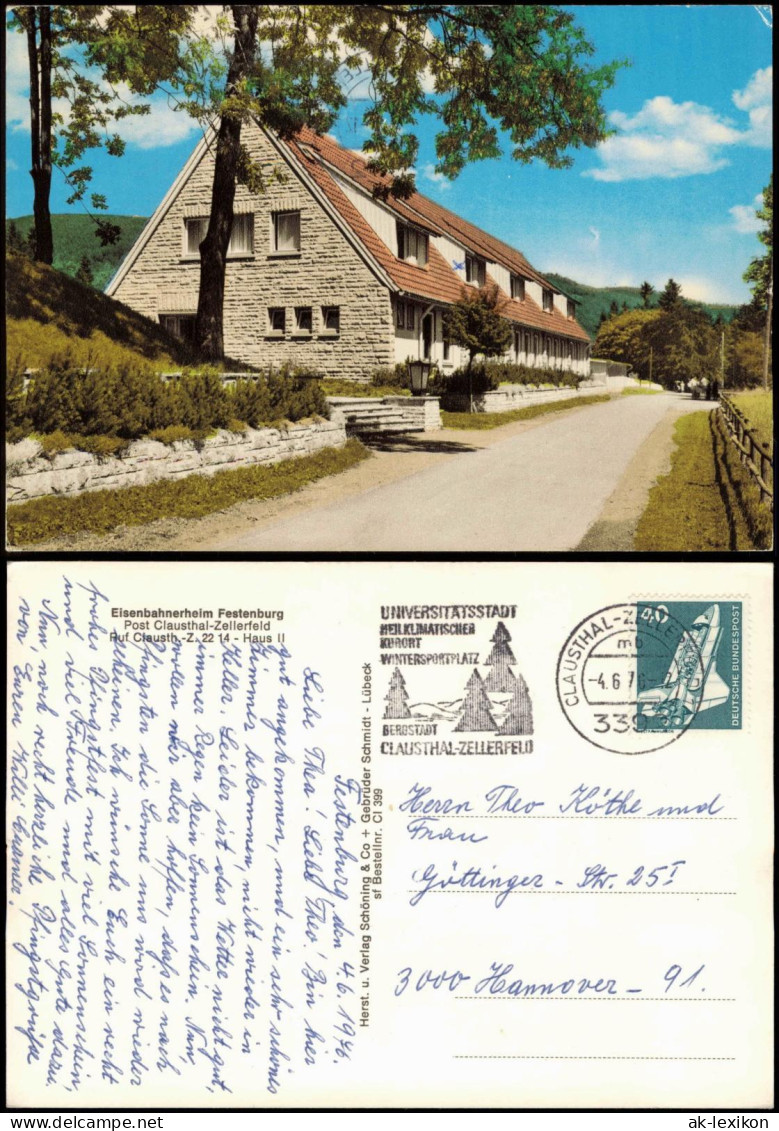 Eisenbahnerheim Festenburg
Post Clausthal-Zellerfeld
Ruf Clausth.-Z. 22 14 - Haus II
UNIVERSITÄTSSTADT
HEILKLIMATISCHER
KURORT
WINTERSPORTPLATZ
BERGSTADT
CLAUSTHAL-ZELLERFELD
CLAUSTHAL-ZELLERF
mb
-4.6.7
339
DEUTSCHE BUNDESPOST
Herst. u. Verlag Schöning & Co + Gebrüder Schmidt - Lübeck
sf Bestellnr. Cl 399
Festenburg den 4.6.1976.
Liebe Thea! Lieber Theo! Bin hier
gut angekommen, und ein sehr schönes
Zimmer bekommen, nicht wieder in
Keller. Leider ist das Wetter nicht gut,
immer Regen kein Sonnenschein. Nun,
wollen wir aber hoffen, das es nach
Pfingsten die Sonne uns mal wieder
scheint. Ich wünsche Euch ein recht
frohes Pfingstfest mit viel Sonnenschein,
und viel Freunde und alles Gute dazu.
Nun, noch recht herzliche Pfingstgrüße
von Euren Willi
Herrn Theo Köthe und
Frau
Göttinger - Str. 25 I
3000 Hannover - 91.
ak-lexikon